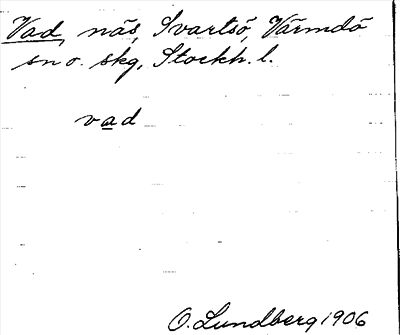 Vad, näs, Svartsö, Värmdö
sn o. skg, Stockh. l.
vad
O. Lundberg 1906